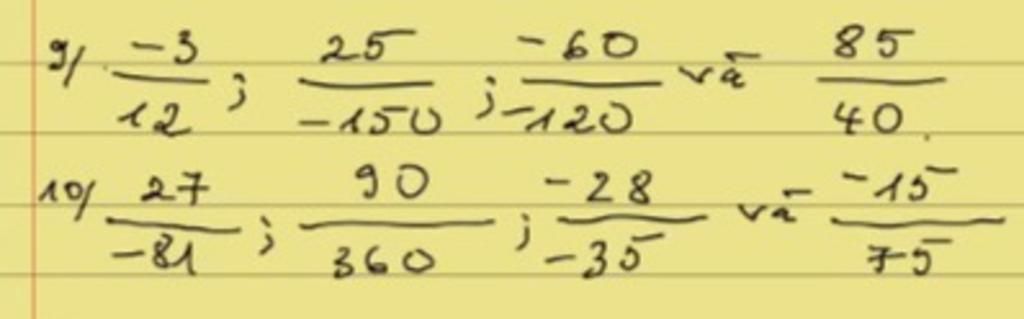 9/ -3/12 ; 25/-150 ; -60/-120 và 85/40.
10/ 27/-81 ; 90/360 ; -28/-35 và -15/75